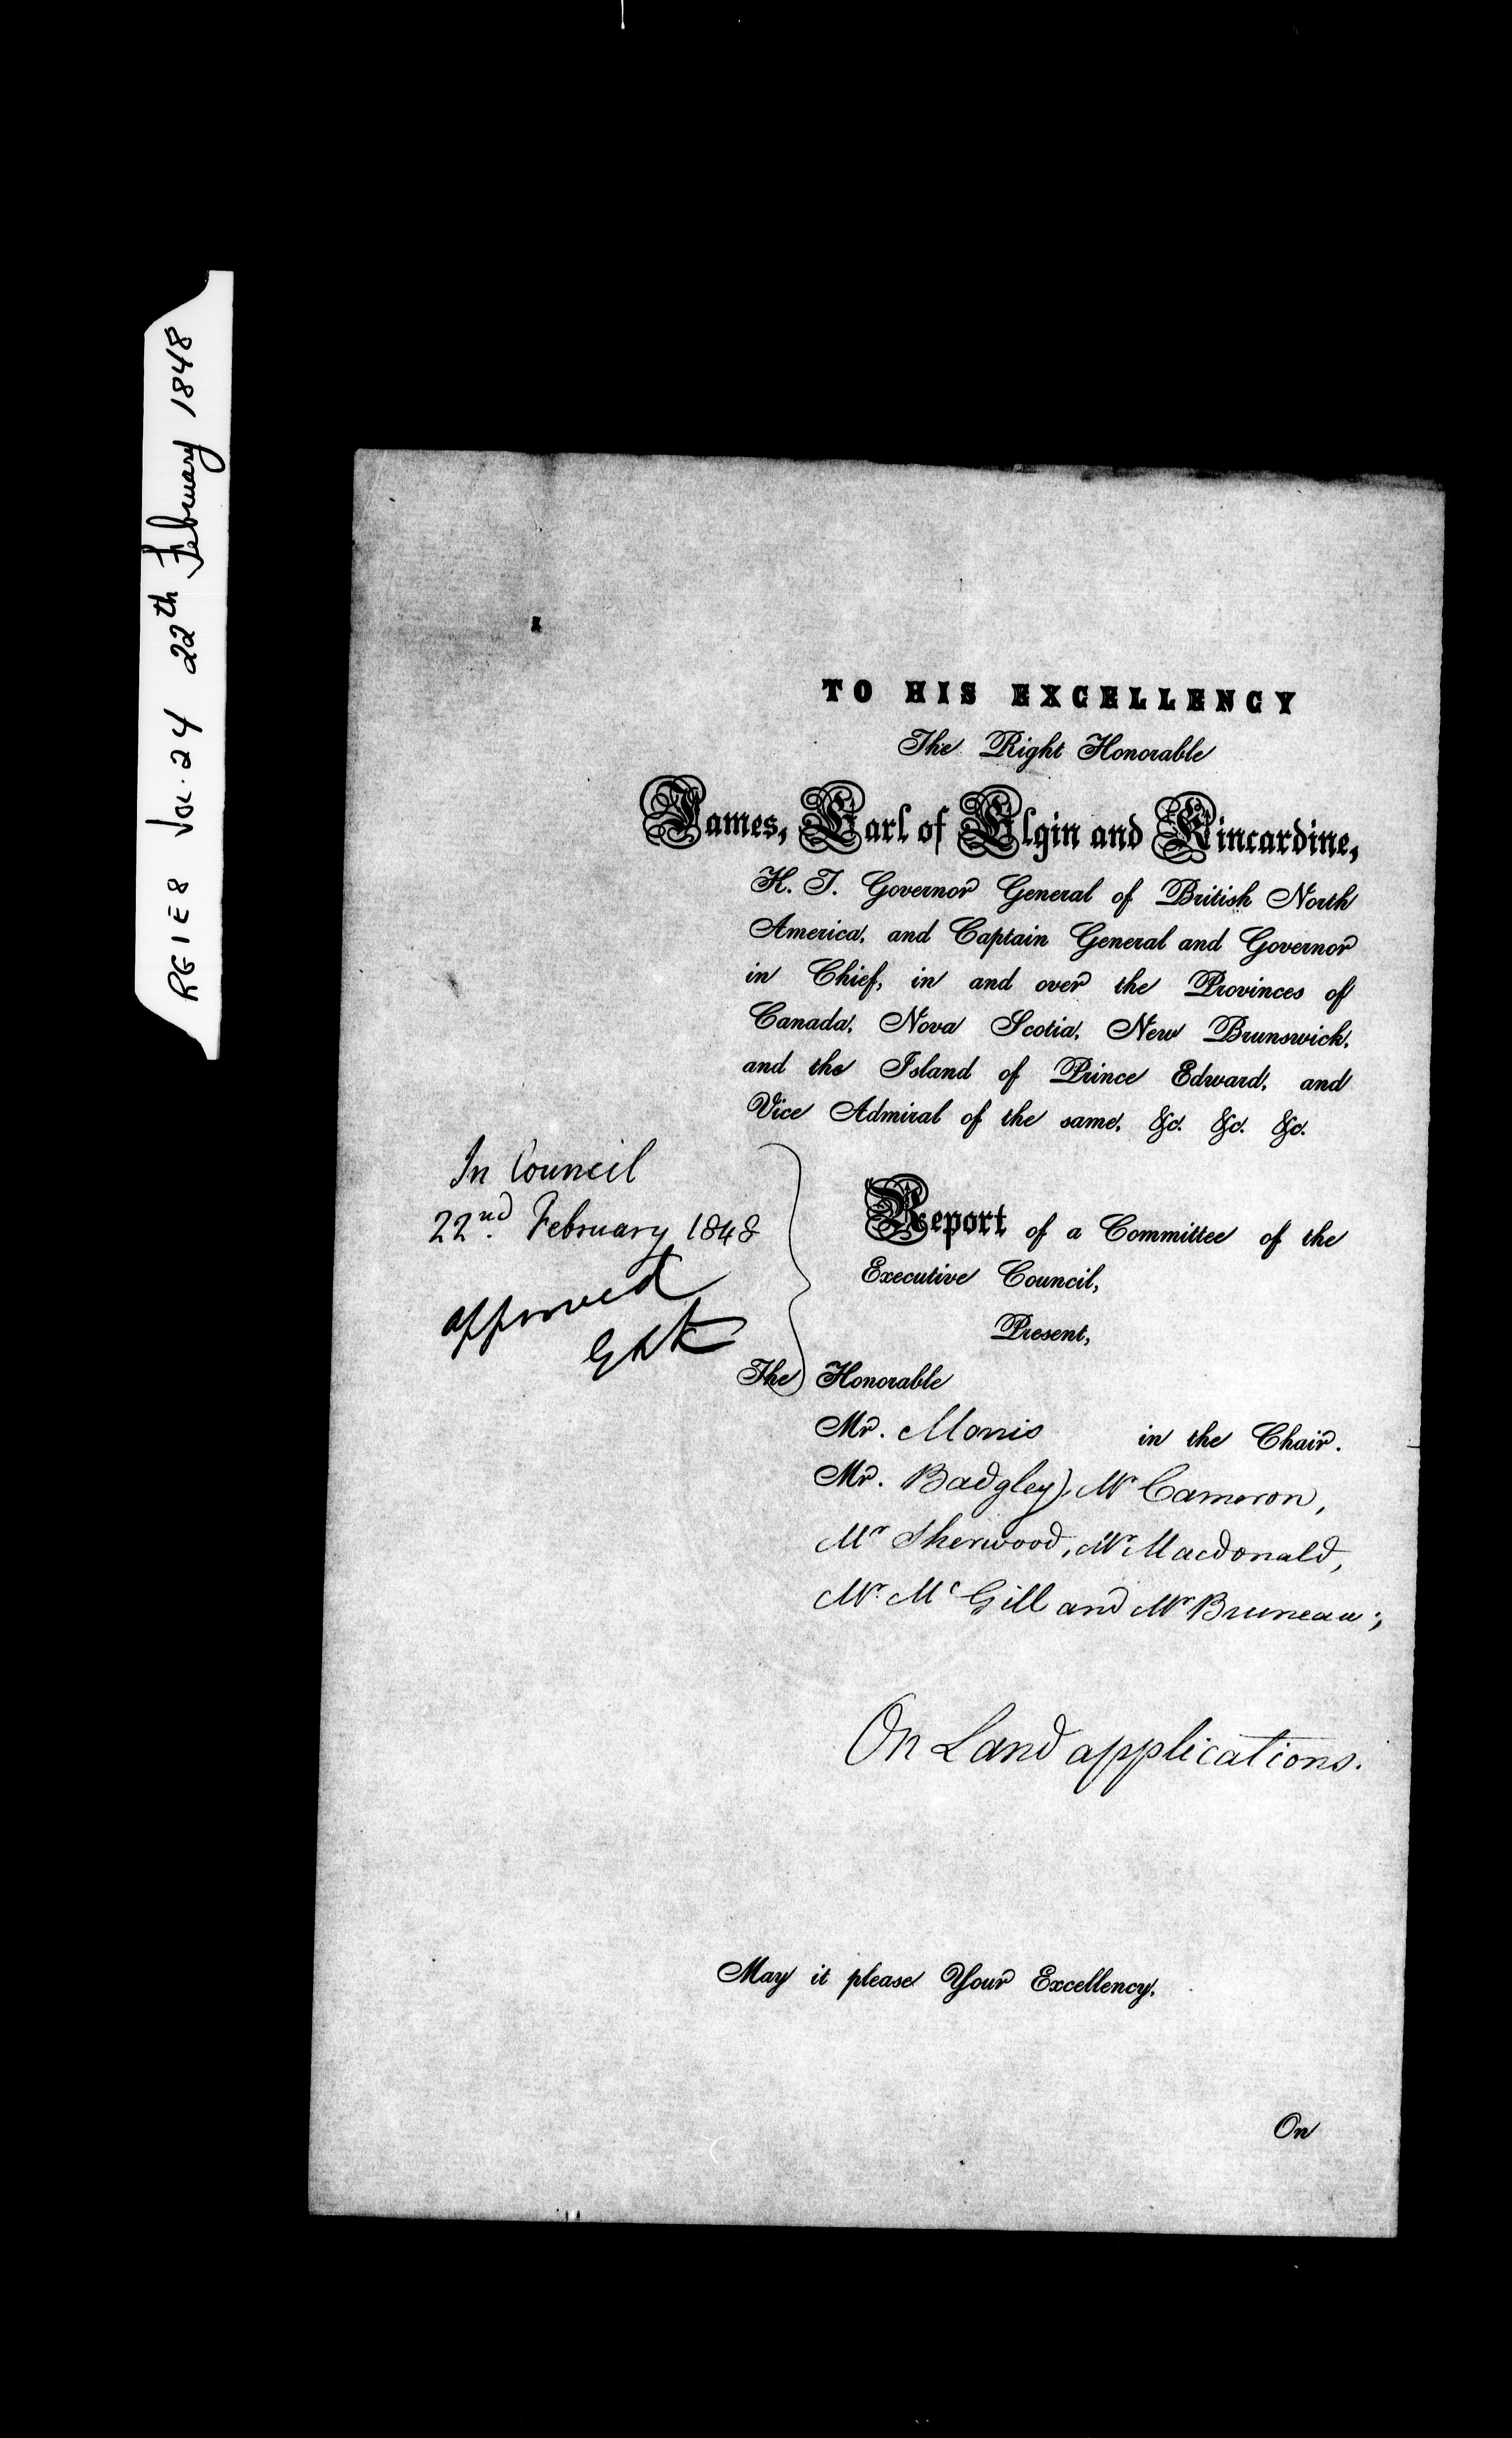 RG 1 E 8 Vol. 24 22th February 1848
TO HIS EXCELLENCY
The Right Honorable
James, Earl of Elgin and Kincardine,
K. T. Governor General of British North
America, and Captain General and Governor
in Chief, in and over the Provinces of
Canada, Nova Scotia, New Brunswick,
and the Island of Prince Edward, and
Vice Admiral of the same, &c. &c. &c.
In Council
22nd. February 1848
approved
Report of a Committee of the
Executive Council,
Present,
The Honorable
Mr. Morris in the Chair.
Mr. Badgley, Mr Cameron,
Mr Sherwood, Mr Macdonald,
Mr. McGill and Mr Bruneau;
On Land applications.
May it please Your Excellency,
On